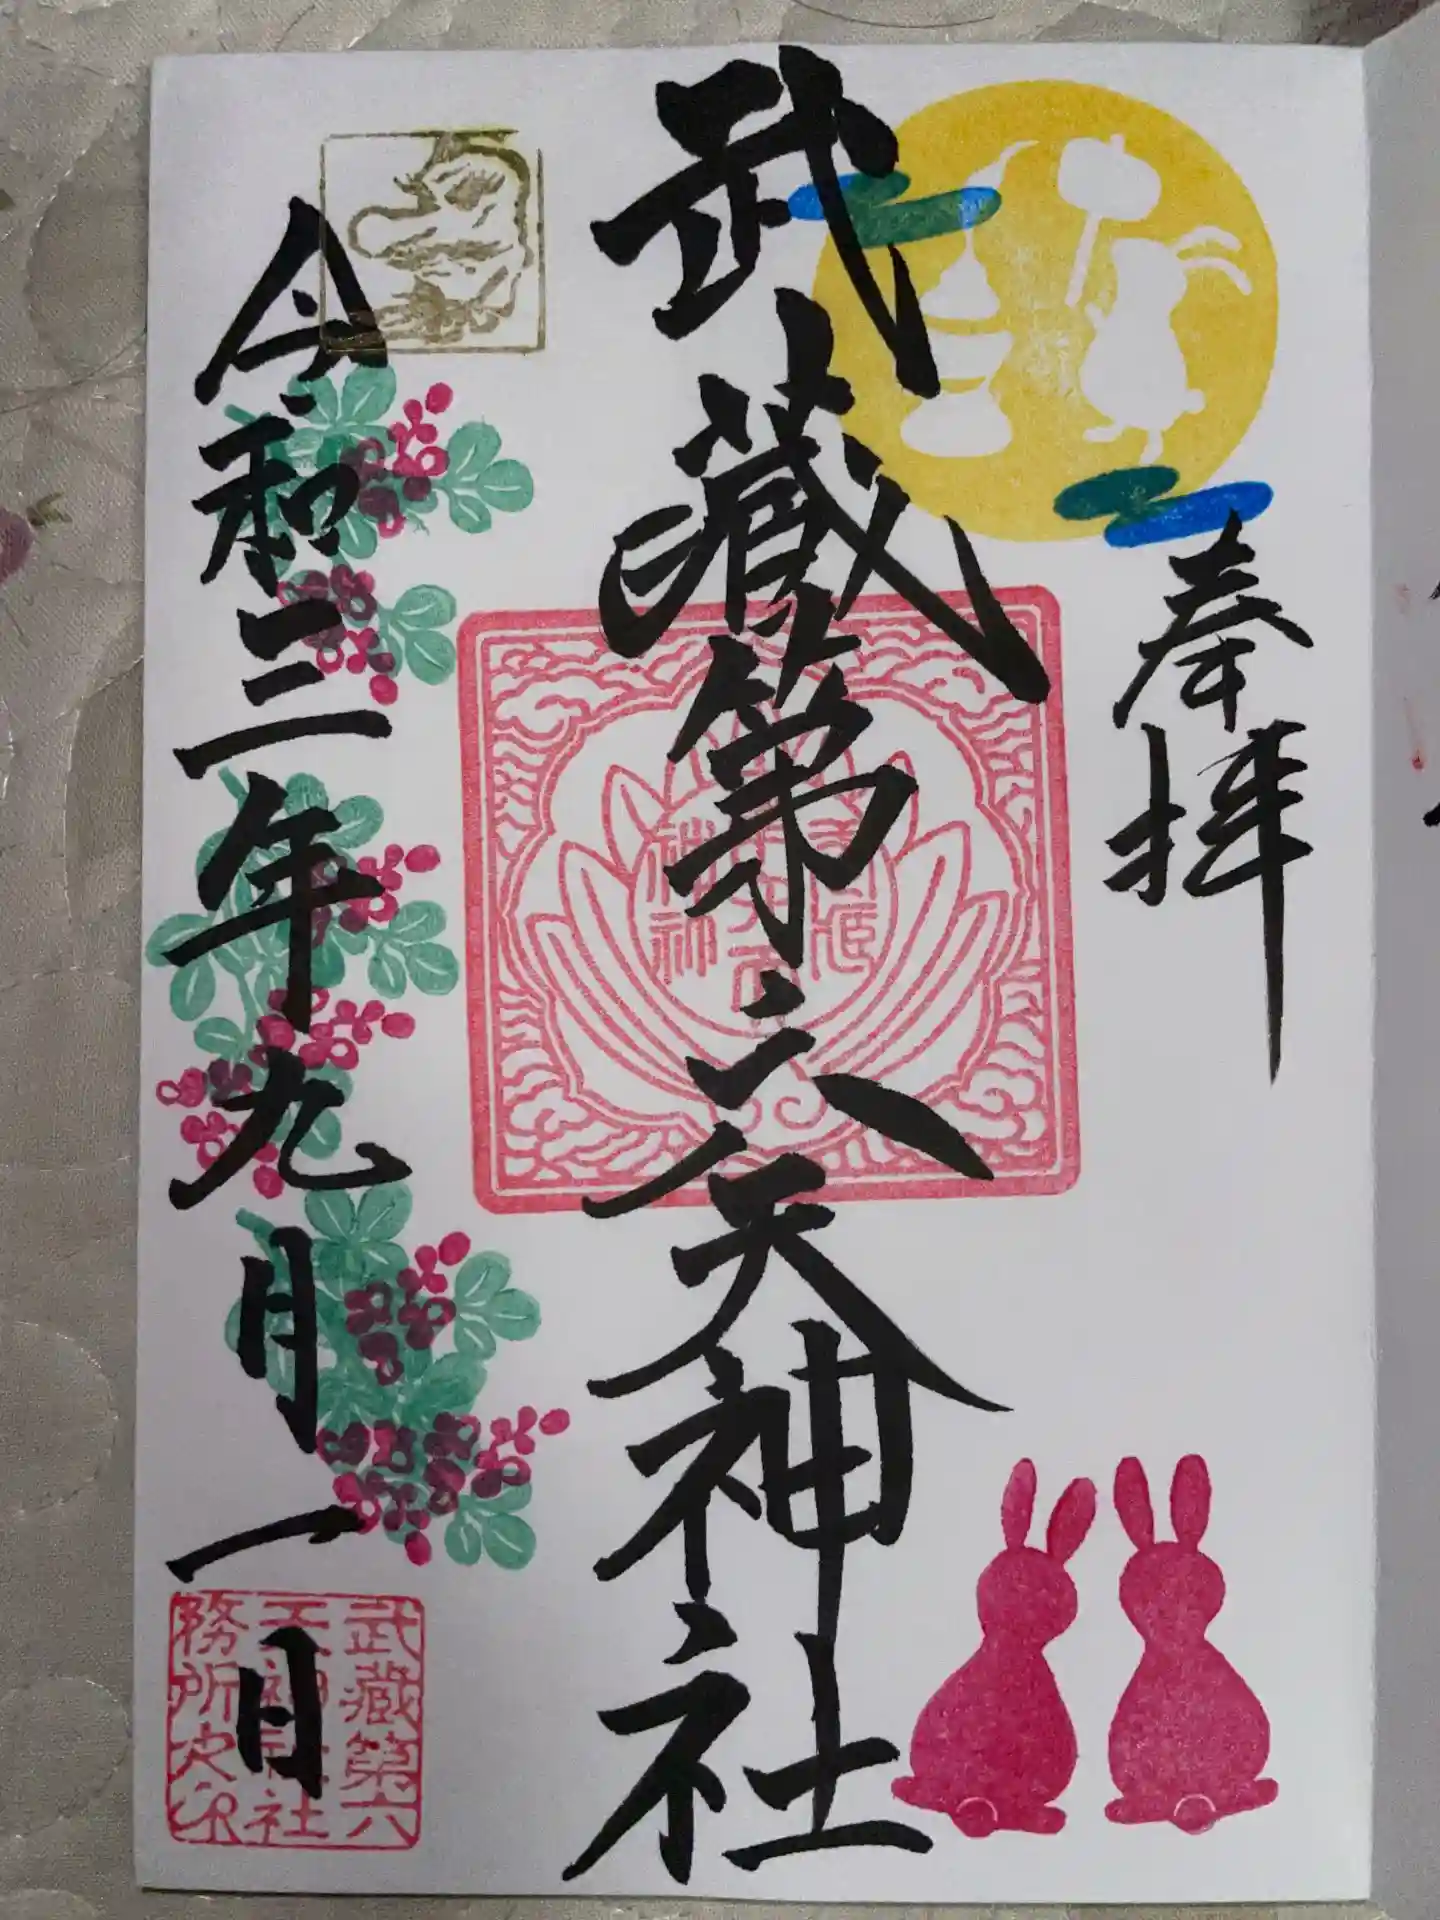 奉拝
武蔵第六天神社
令和三年九月一日
武蔵第六
天神社社
務所之印